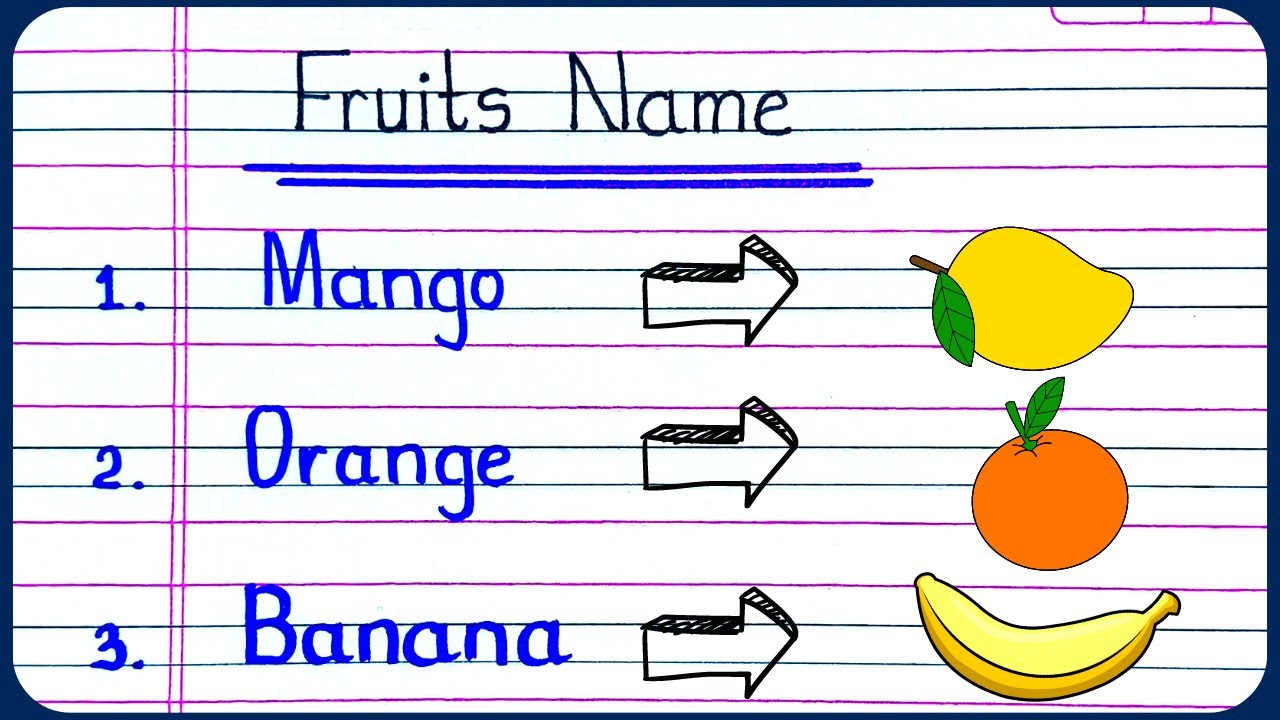 Fruits Name
1. Mango
2. Orange
3. Banana